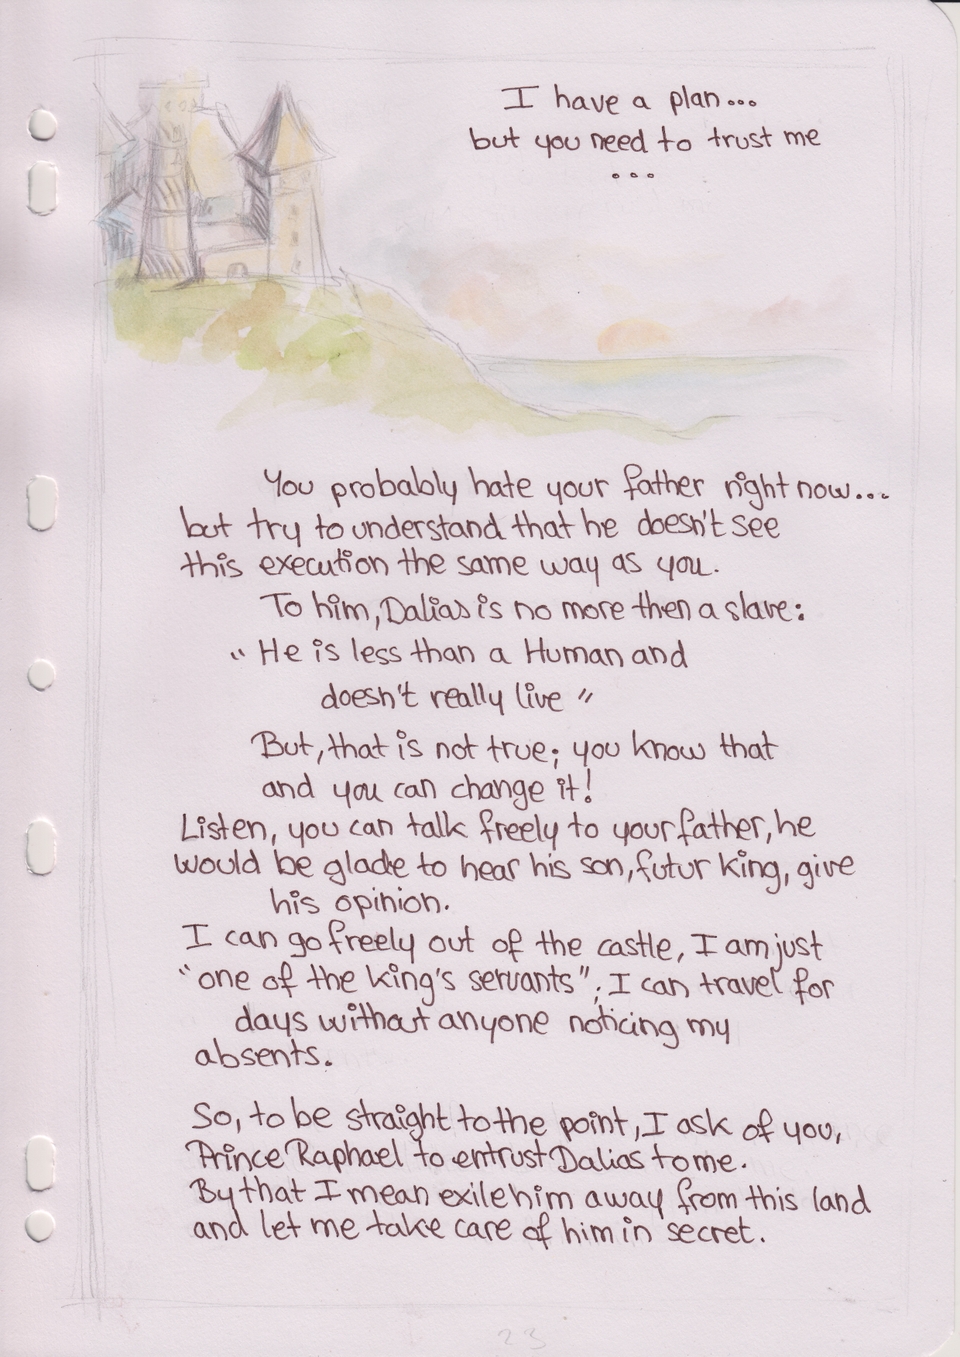 I have a plan...
but you need to trust me
...
You probably hate your father right now...
but try to understand that he doesn't see
this execution the same way as you.
To him, Dalias is no more then a slave:
" He is less than a Human and
doesn't really live "
But, that is not true; you know that
and you can change it!
Listen, you can talk freely to your father, he
would be glade to hear his son, futur king, give
his opinion.
I can go freely out of the castle, I am just
"one of the king's servants"; I can travel for
days without anyone noticing my
absents.
So, to be straight to the point, I ask of you,
Prince Raphael to entrust Dalias to me.
By that I mean exile him away from this land
and let me take care of him in secret.
23